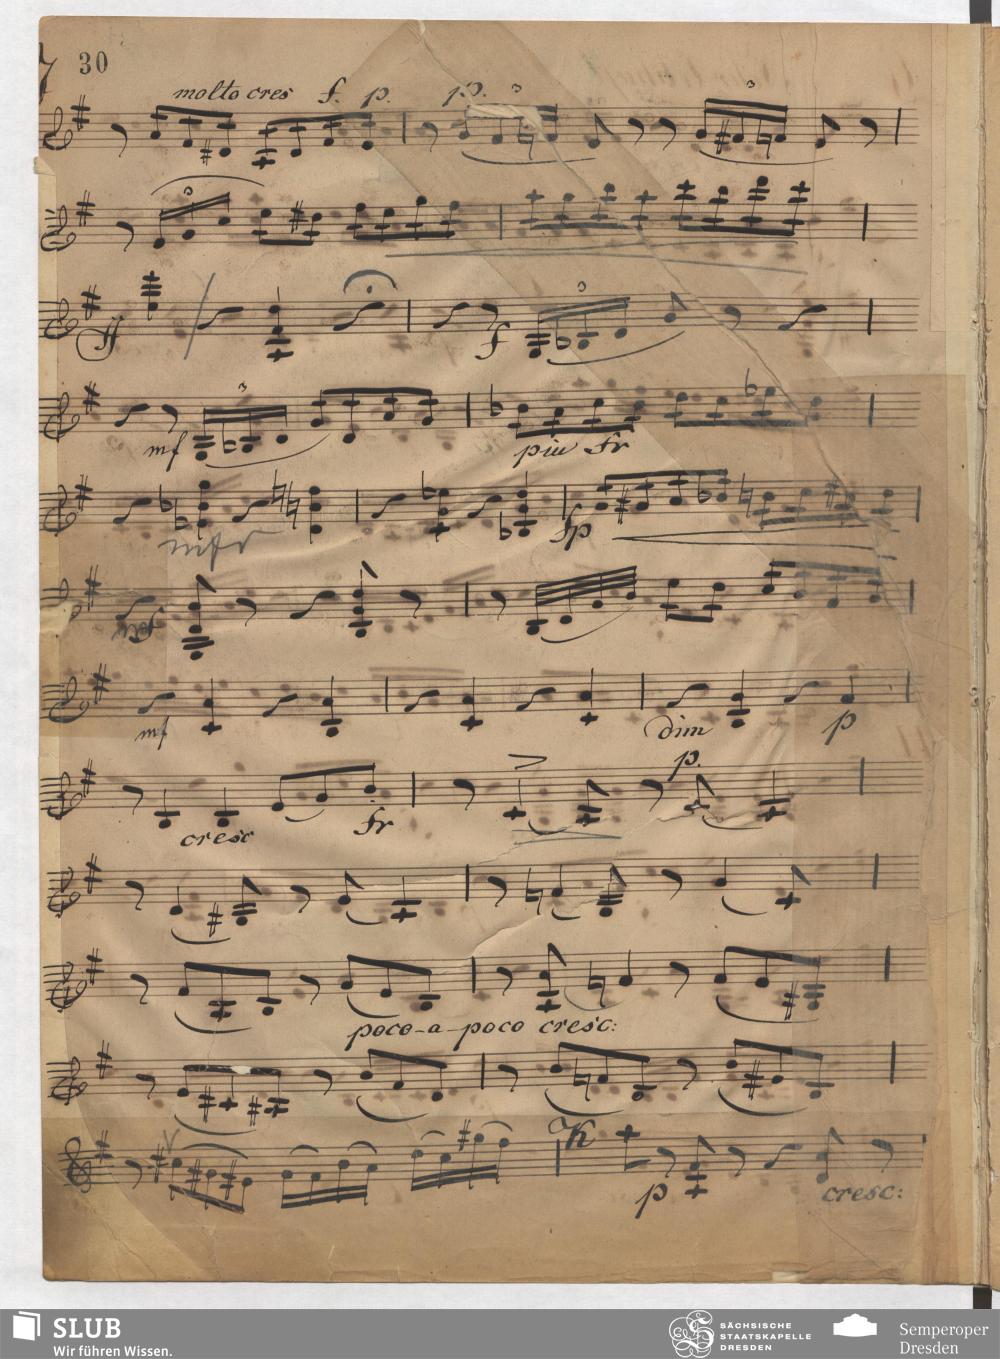 30
molto cres f. p. p. 3 3
3
ff f 3
mf 3 piu fr
fp
mf dim p
cresc fr p.
poco-a-poco cresc:
K
p cresc:
SLUB
Wir führen Wissen.
SÄCHSISCHE
STAATSKAPELLE
DRESDEN
Semperoper
Dresden